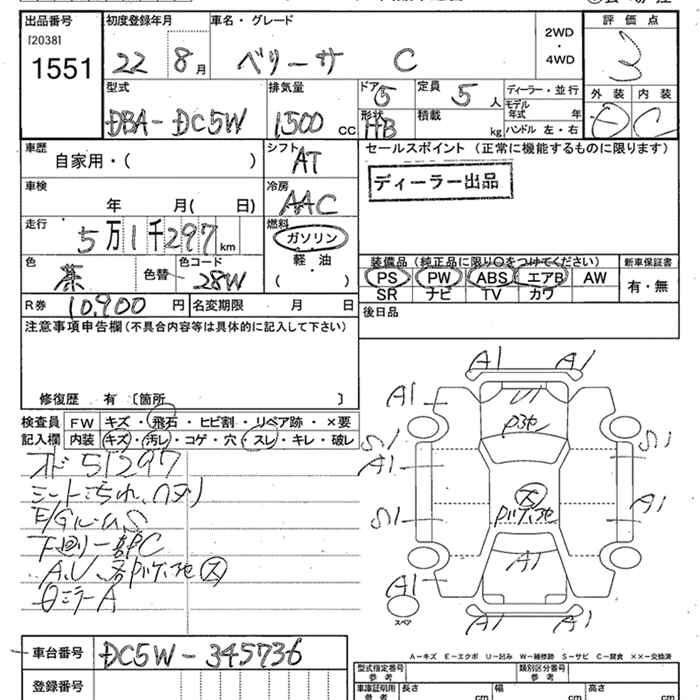 出品番号 初度登録年月 車名・グレード 2WD・4WD 評価点
[2038]
1551
22 8月 ベリーサ C 3
型式 排気量 ドア 定員 ディーラー・並行 外装 内装
DBA-DC5W 1500cc 5 5人 モデル年式 年 D C
形状 HB 積載 kg ハンドル 左・右
車歴 自家用・( ) シフト AT セールスポイント(正常に機能するものに限ります)
ディーラー出品
車検 年 月( 日) 冷房 AAC
走行 5万1千297km 燃料 ガソリン
軽油
( )
色 茶 色替 色コード 28W
装備品(純正品に限り○をつけてください) 新車保証書
PS PW ABS エアB AW 有・無
SR ナビ TV カワ
R券 10,900円 名変期限 月 日 後日品
注意事項申告欄(不具合内容等は具体的に記入して下さい)
修復歴 有〔箇所 〕
検査員記入欄 FW キズ・飛石・ヒビ割・リペア跡・×要
内装 キズ・汚レ・コゲ・穴・スレ・キレ・破レ
51297
シート
E/GルームS
下廻り一部C
A.U
ミラーA
A1 A1
A1
S1 S1
A1
S1 A1
A1
A1
A1 A1
スペア
A－キズ E－エクボ U－凹み W－補修跡 S－サビ C－腐食 ××－交換済
車台番号 DC5W-345736
登録番号
型式指定番号 参考 類別区分番号 参考
車庫証明用 参考 長さ cm 幅 cm 高さ cm